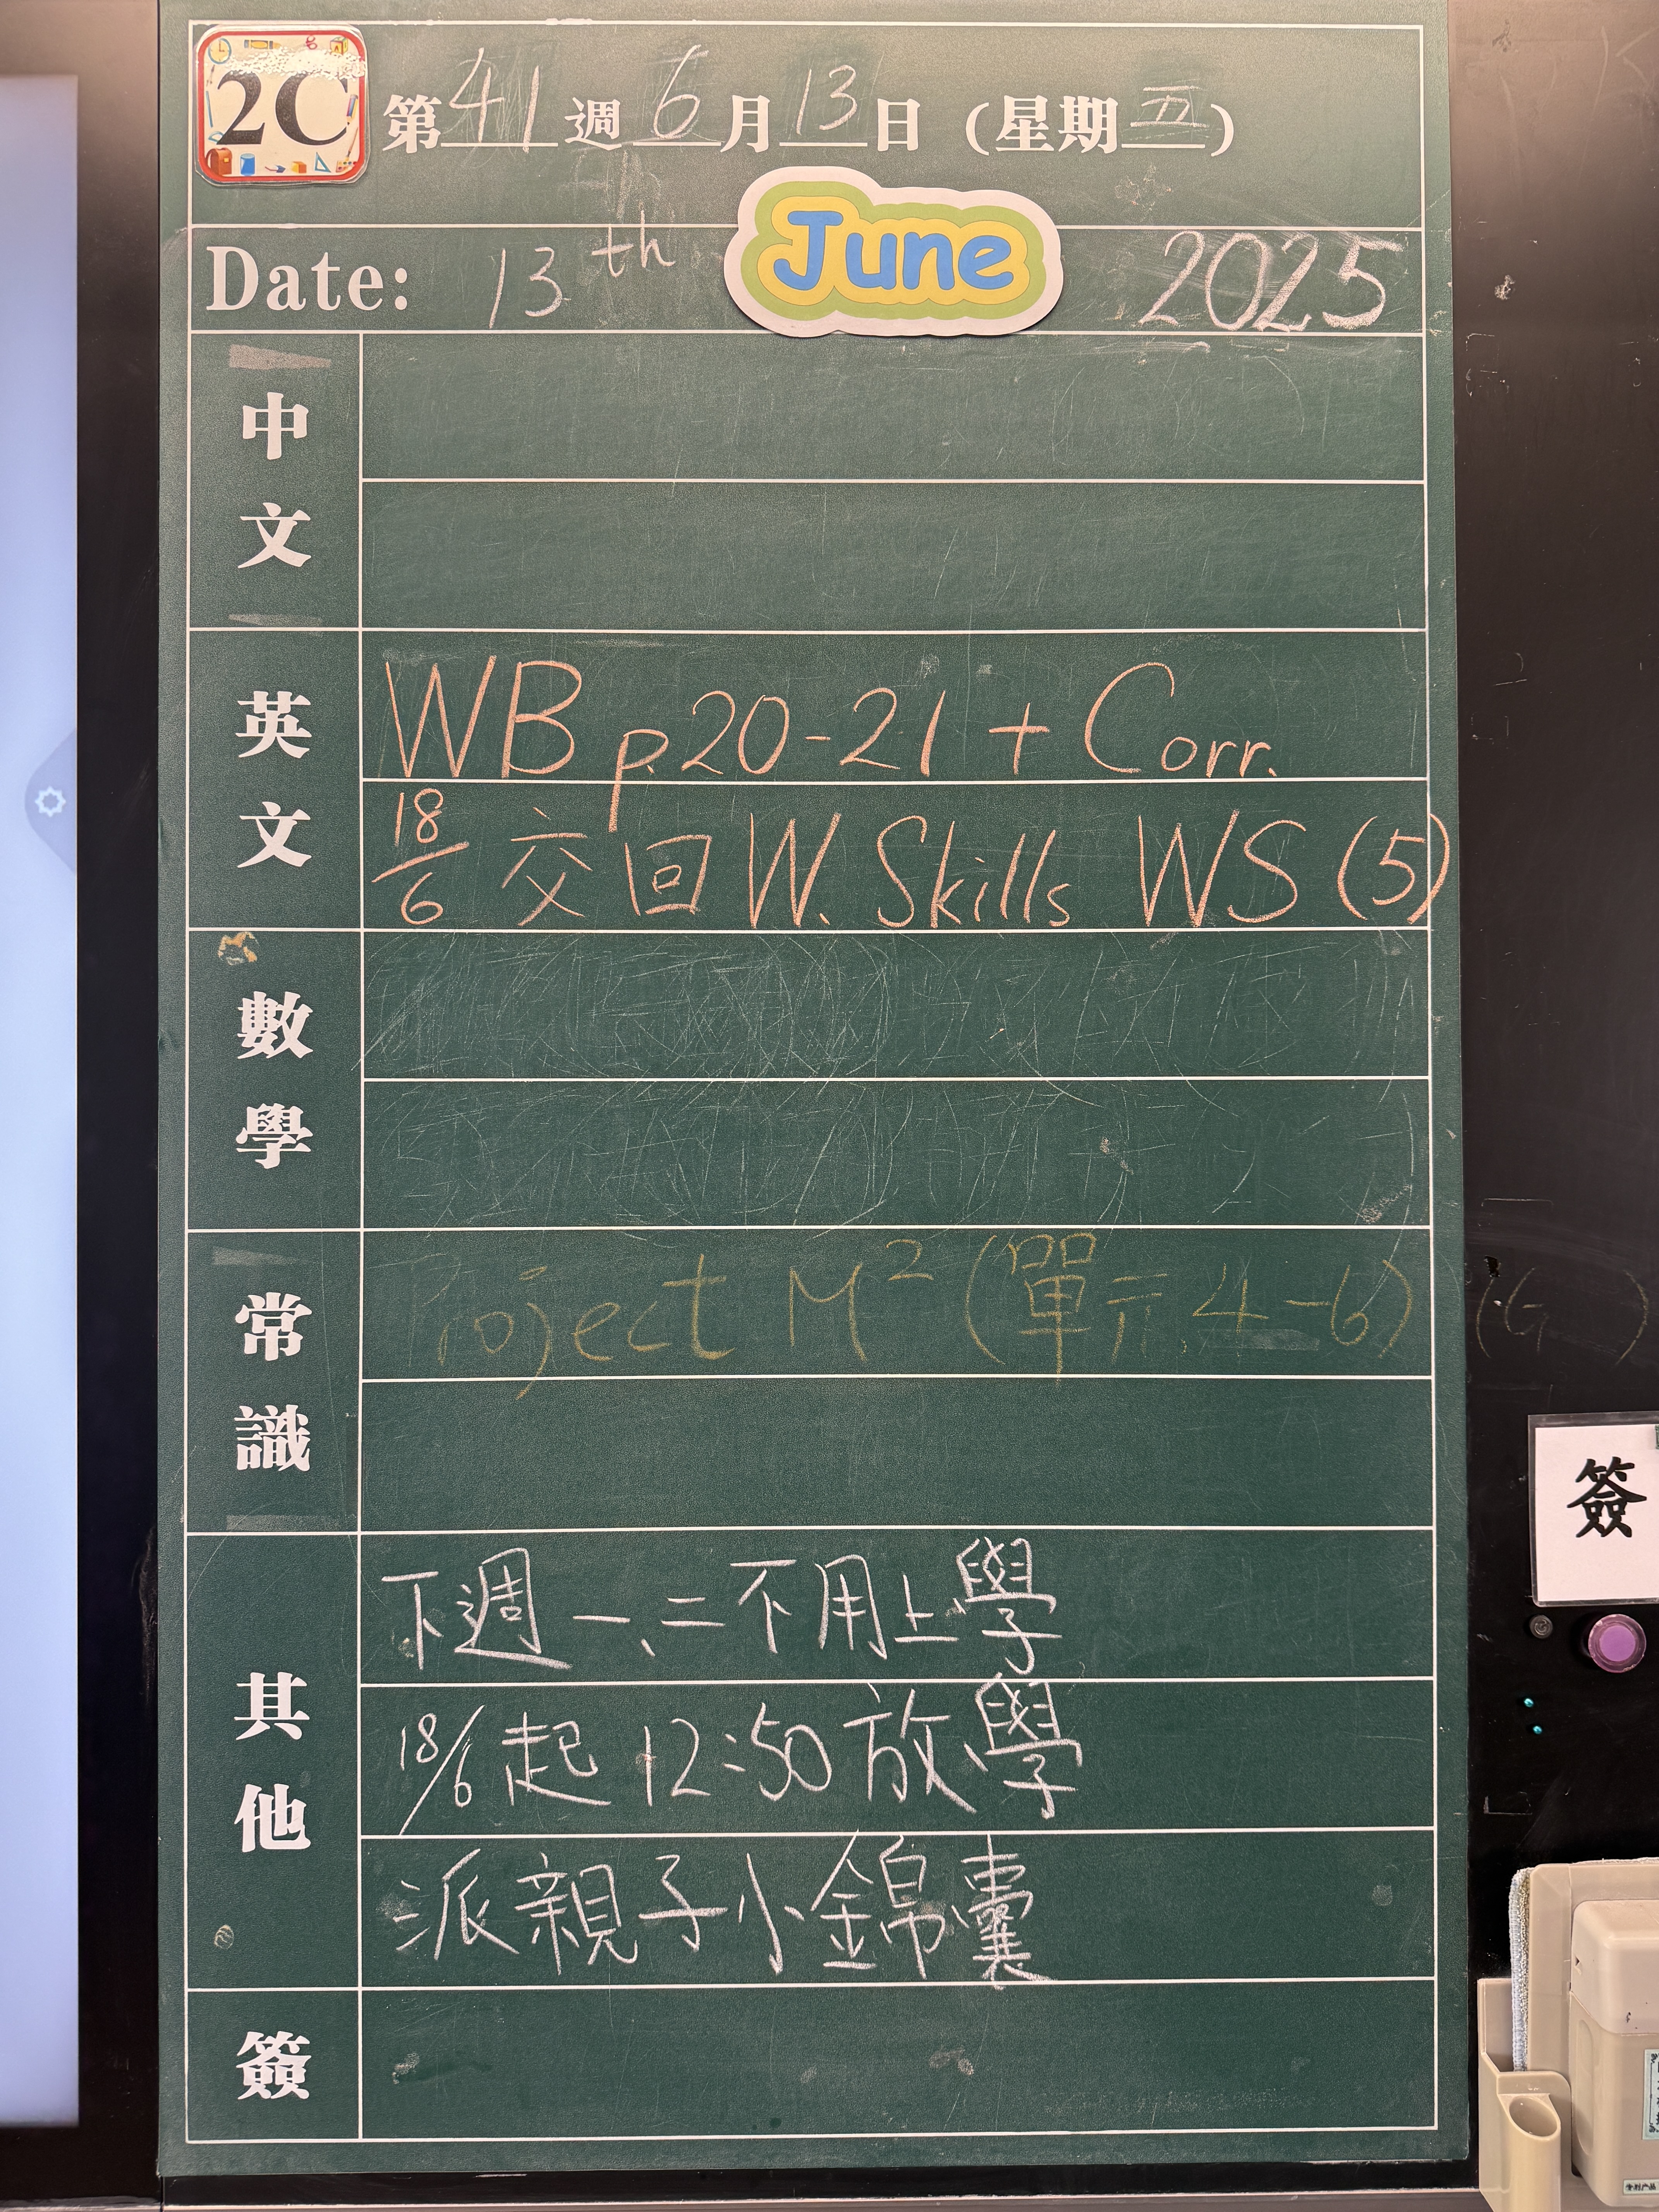 2C
第41週6月13日(星期五)
Date: 13th June 2025
中文
英文
WB p.20-21 + Corr.
18/6 交回 W. Skills WS (5)
數學
常識
Project M² (單元4-6)
其他
下週一、二不用上學
18/6起 12:50放學
派親子小錦囊
簽
簽